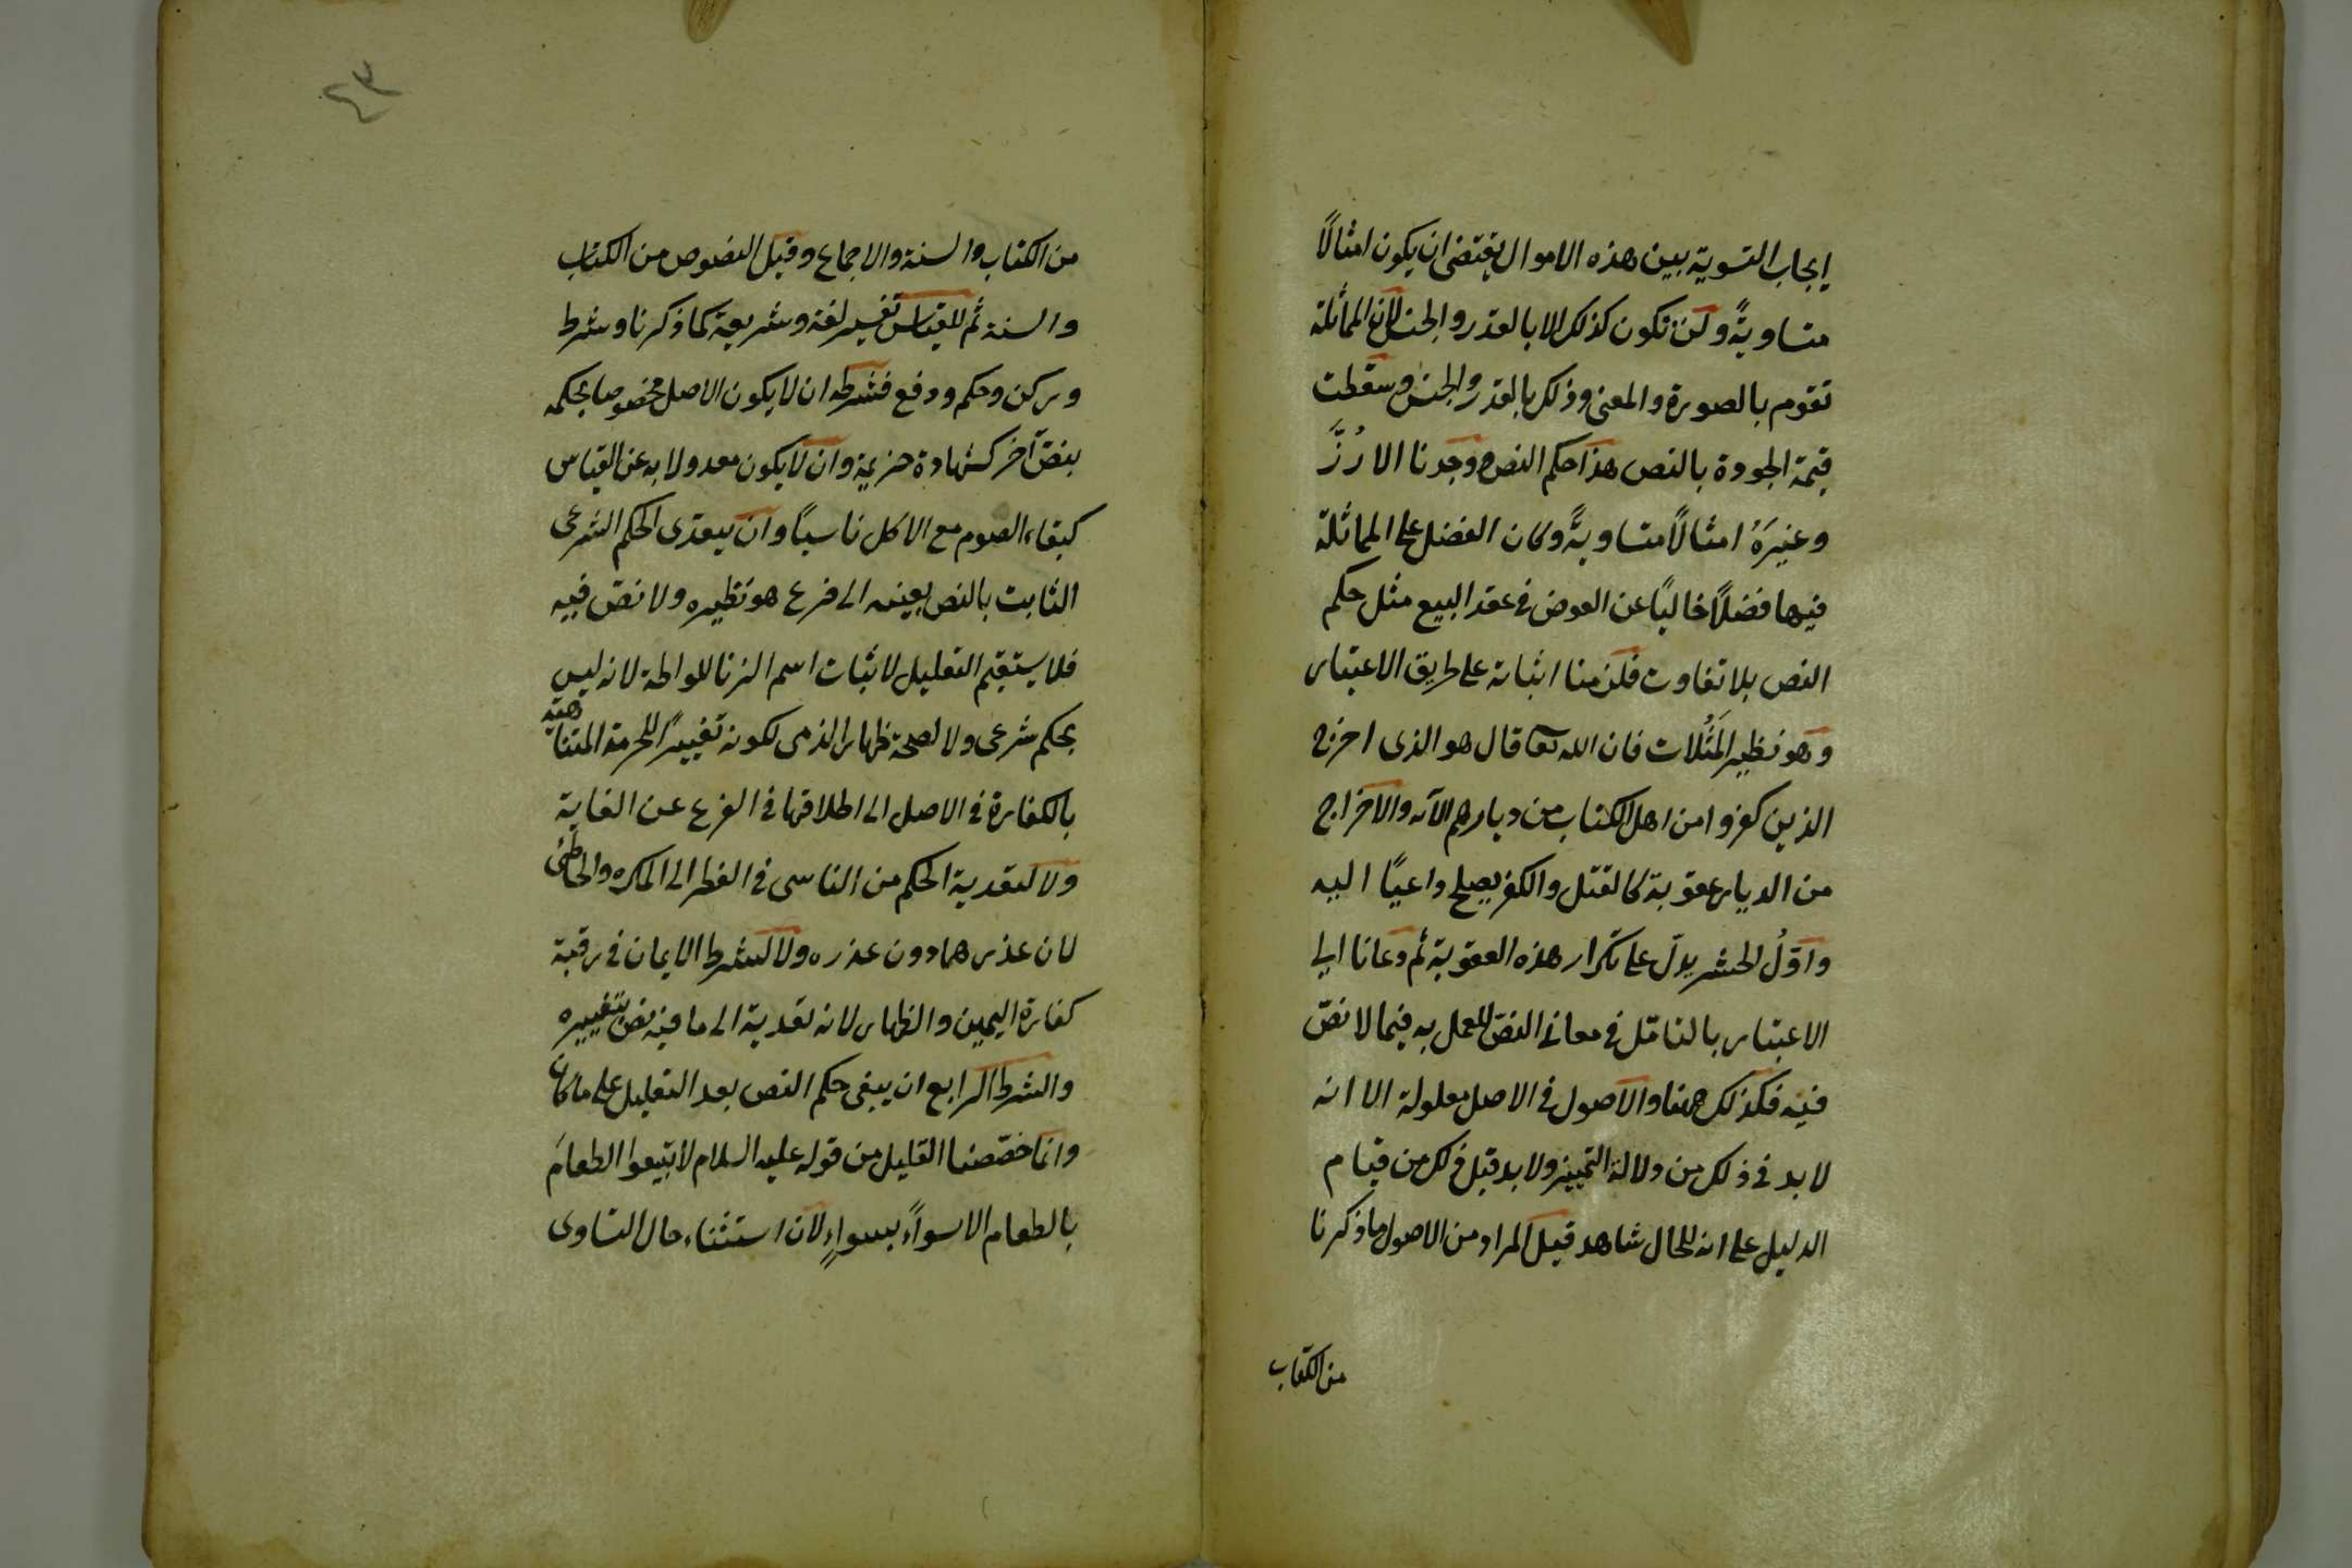 ايجاب التسوية بين هذه الاموال يقتضى ان يكون امثالًا
متساويةً ولن تكون كذلك الا بالقدر والجنس لان المماثلة
تقوم بالصورة والمعنى وذلك بالقدر والجنس وسقطت
قيمة الجودة بالنص هذا حكم النص ووجدنا الارُزَّ
وغيرَهُ امثالًا متساويةً وكان الفضل على المماثلة
فيها فضلًا خاليًا عن العوض فى عقد البيع مثل حكم
النص بلا تفاوت فلزمنا اثباته على طريق الاعتبار
وهو نظير المَثُلات فان الله تعا قال هو الذى اخرج
الذين كفروا من اهل الكتاب من ديارهم الآية والاخراج
من الديار عقوبة كالقتل والكفر يصلح داعيًا اليه
واوّلُ الحشر يدلّ على تكرار هذه العقوبة ثم دعانا الى
الاعتبار بالتامّل فى معانى النصّ للعمل به فيما لا نصّ
فيه فكذلك ههنا والاصول فى الاصل معلولة الا انه
لا بد فى ذلك من دلالة التمييز ولا بد قبل ذلك من قيام
الدليل على انه للحال شاهد قيل المراد من الاصول ما ذكرنا
من الكتاب
٤٣
من الكتاب والسنة والاجماع وقيل النصوص من الكتاب
والسنة ثم للقياس تفسير لغة وشريعة كما ذكرنا وشرط
وركن وحكم ودفع فشرطه ان لا يكون الاصل مخصوصا بحكمه
بنصّ آخر كشهادة خزيمة وان لا يكون معدولا به عن القياس
كبقاء الصوم مع الاكل ناسيًا وان يتعدى الحكم الشرعى
الثابت بالنص بعينه الى فرع هو نظيره ولا نصّ فيه
فلا يستقيم التعليل لاثبات اسم الزنا للواطة لانه ليس
بحكم شرعى ولا لصحة ظهار الذمى لكونه تغييرًا للحرمة المتناهية
بالكفارة فى الاصل الى اطلاقها فى الفرع عن الغاية
ولا لتعدية الحكم من الناسى فى الفطر الى المكره والخاطئ
لان عذرهما دون عذره ولا لشرط الايمان فى رقبة
كفارة اليمين والظهار لانه تعدية الى ما فيه نص بتغييره
والشرط الرابع ان يبقى حكم النص بعد التعليل على ما كان
وانما خصّصنا القليل من قوله عليه السلام لا تبيعوا الطعامَ
بالطعام الا سواءً بسواءٍ لان استثناء حال التساوى